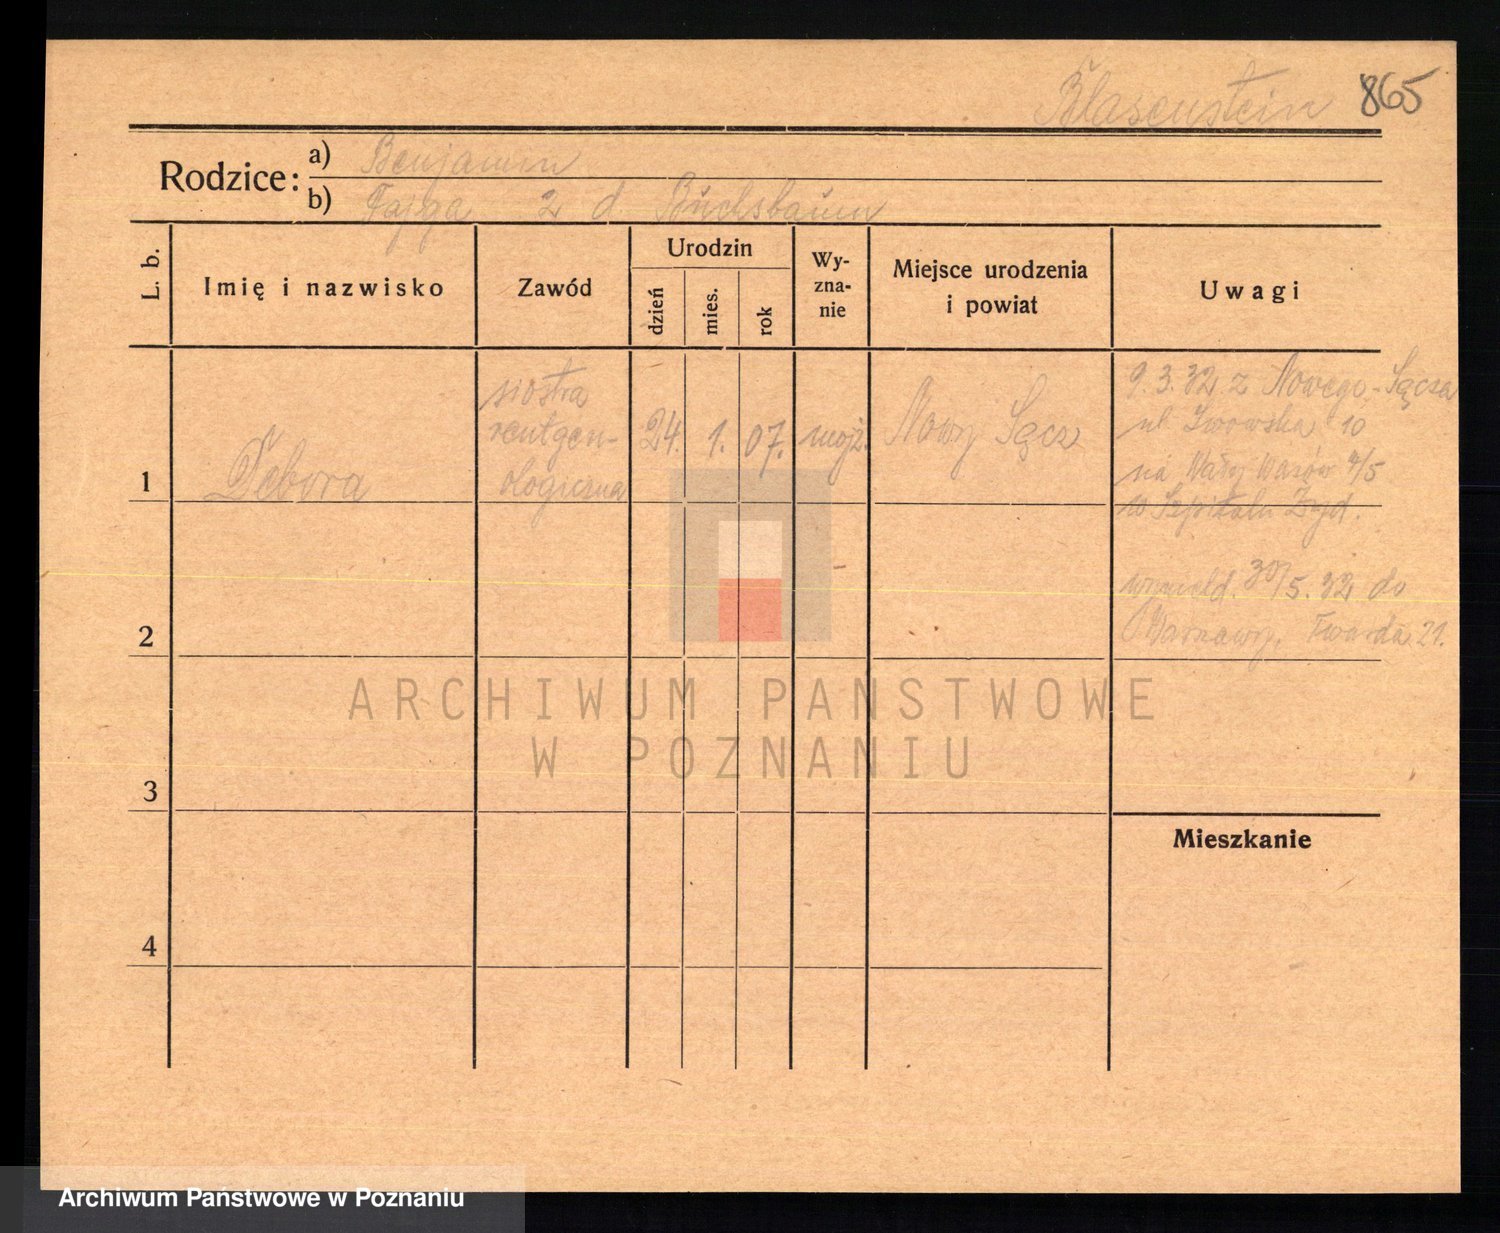 Blasenstein 865
Rodzice:
a) Benjamin
b) Fajga z d Buchsbaum
L. b.
Imię i nazwisko
Zawód
Urodzin
dzień
mies.
rok
Wy-
zna-
nie
Miejsce urodzenia
i powiat
Uwagi
1
Debora
siostra
rentgen-
ologiczna
24. 1. 07.
mojż.
Nowy Sącz
9.3.32 z Nowego-Sącza
ul. Lwowska 10
na Wały Wazów 4/5
w Szpitalu Żyd.
wymeld. 30/5.32 do
Warszawy, Twarda 21.
2
3
4
Mieszkanie
ARCHIWUM PAŃSTWOWE
W POZNANIU
Archiwum Państwowe w Poznaniu